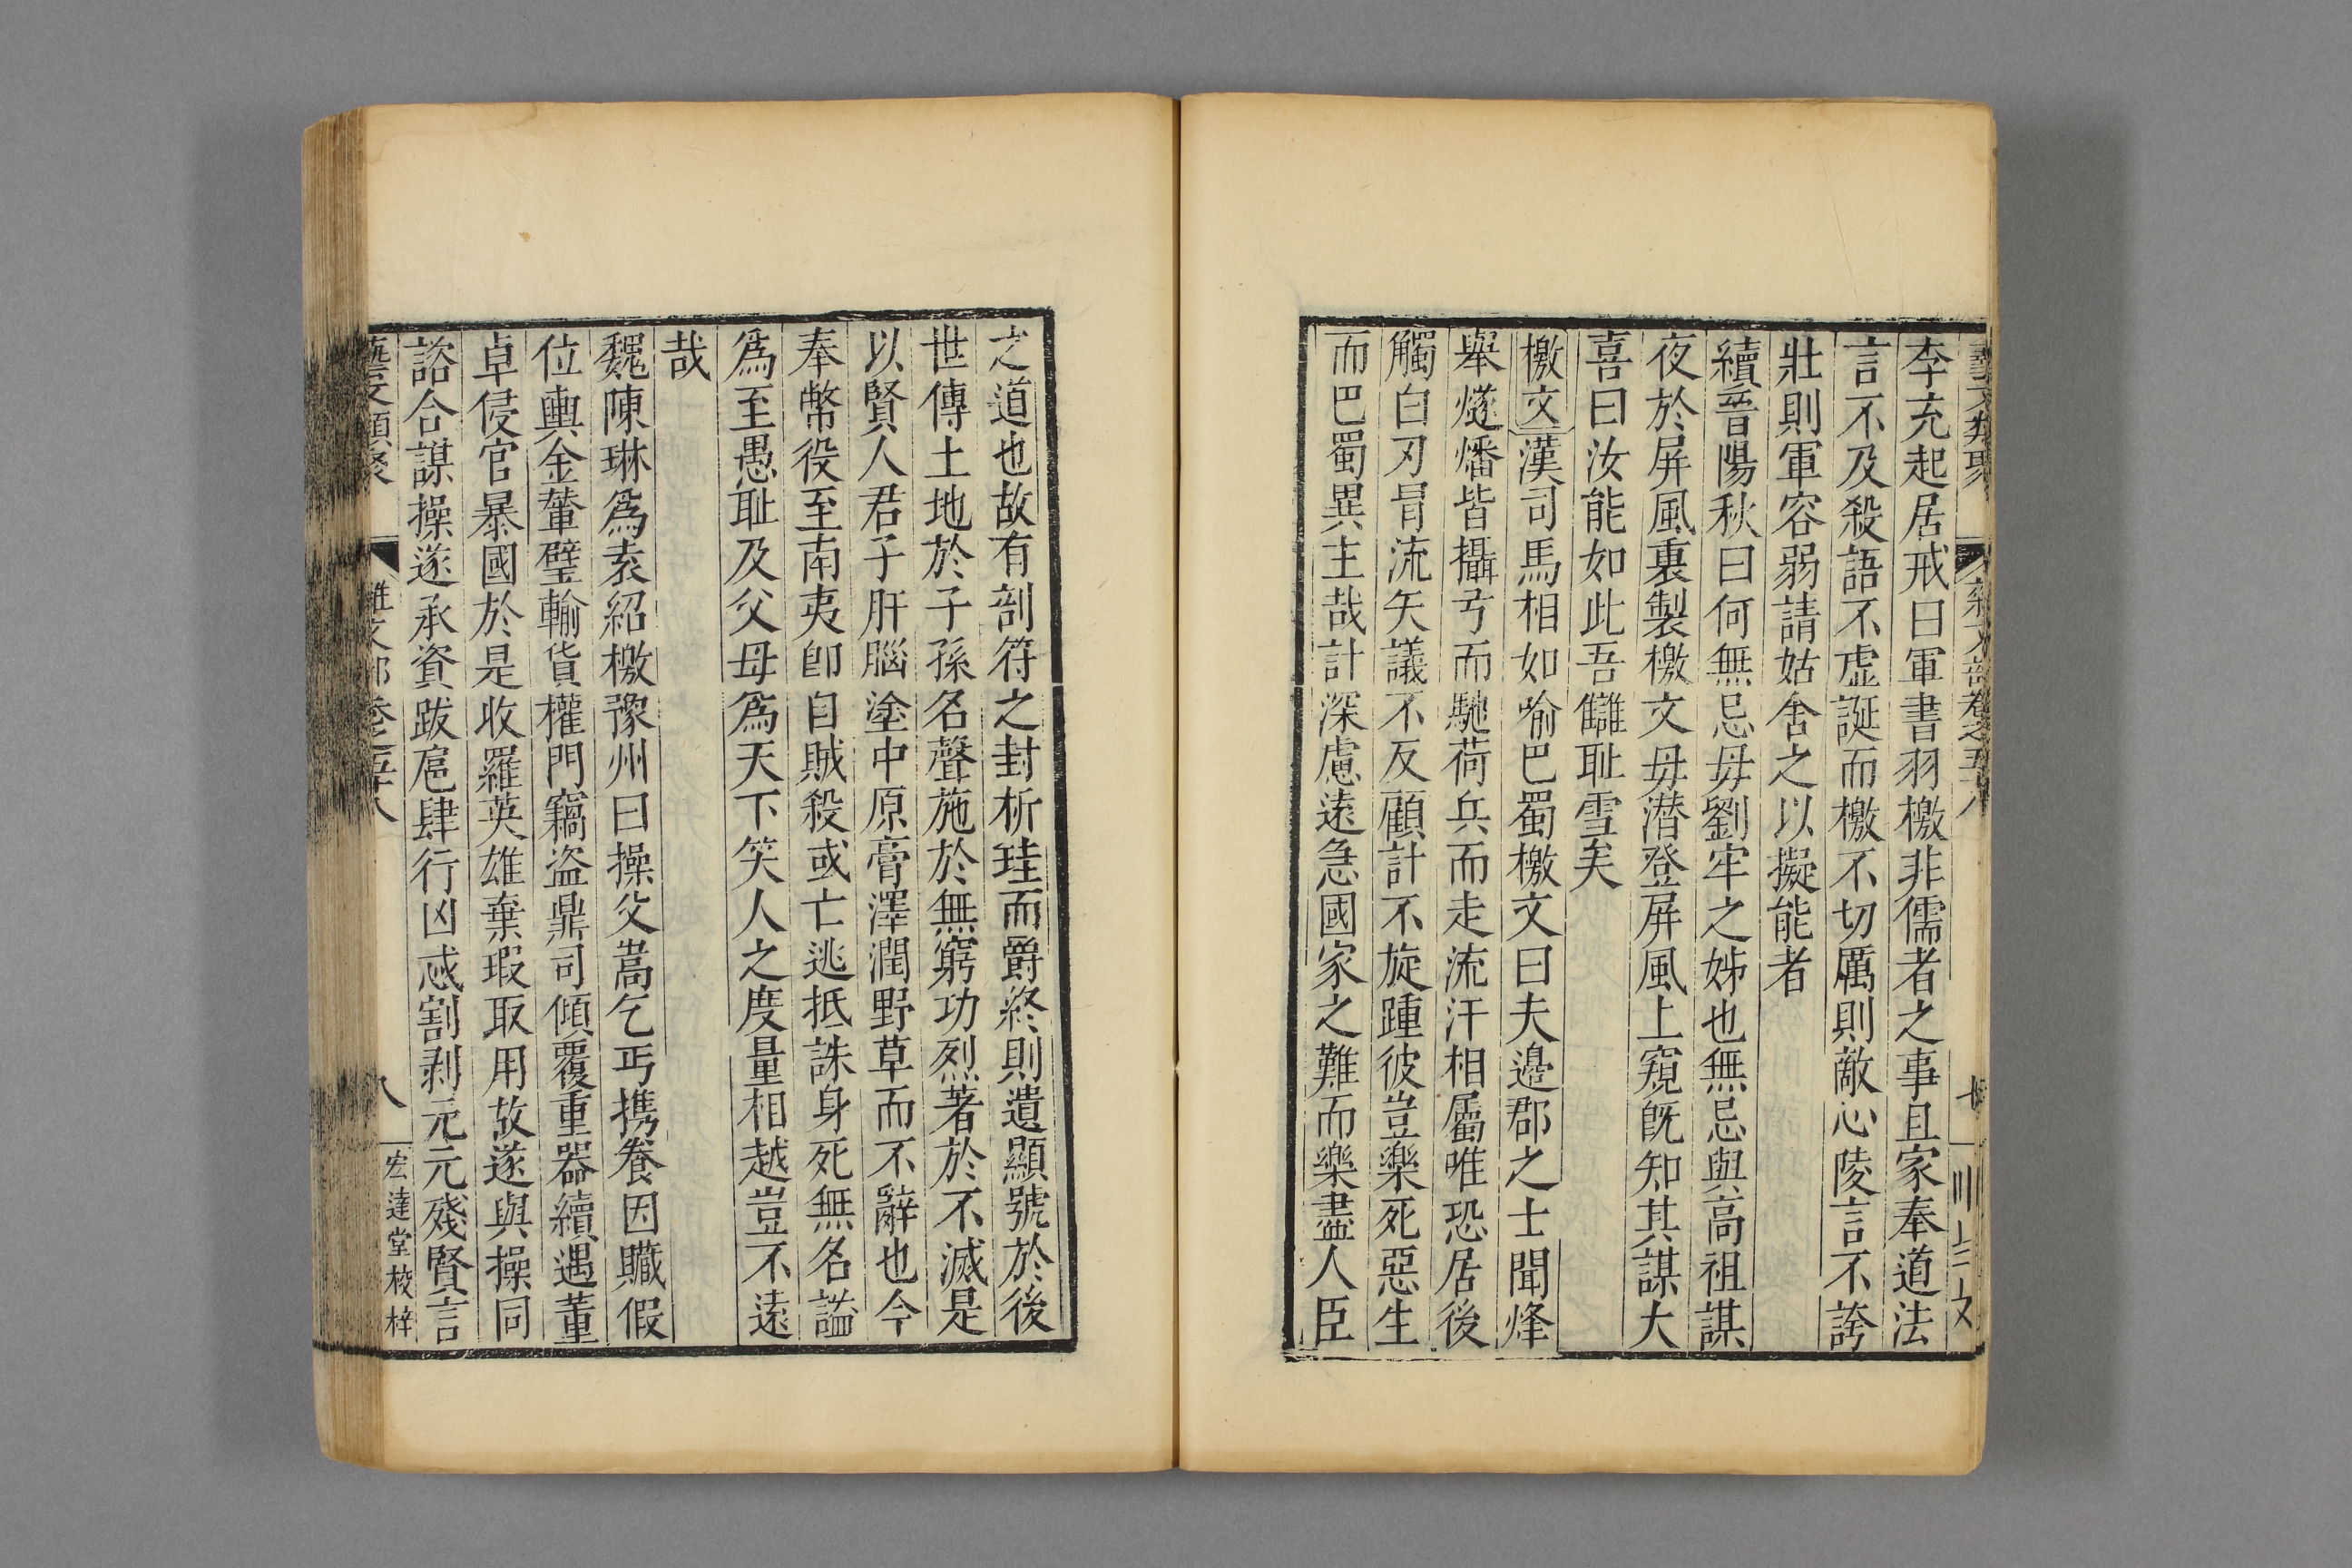 李充起居戒曰軍書羽檄非儒者之事且家奉道法
言不及殺語不虛誕而檄不切厲則敵心陵言不誇
壯則軍容弱請姑舍之以擬能者
續晉陽秋曰何無忌毋劉牢之姊也無忌與高祖謀
夜於屏風裏製檄文毋潛登屏風上窺旣知其謀大
喜曰汝能如此吾讎耻雪矣
檄文漢司馬相如喻巴蜀檄文曰夫邊郡之士聞烽
舉燧燔皆攝弓而馳荷兵而走流汗相屬唯恐居後
觸白刃冐流矢議不反顧計不旋踵彼豈樂死惡生
而巴蜀異主哉計深慮遠急國家之難而樂盡人臣
之道也故有剖符之封析珪而爵終則遺顯號於後
世傳土地於子孫名聲施於無窮功烈著於不滅是
以賢人君子肝腦塗中原膏澤潤野草而不辭也今
奉幣役至南夷卽自賊殺或亡逃抵誅身死無名謚
爲至愚耻及父母爲天下笑人之度量相越豈不遠
哉
魏陳琳爲袁紹檄豫州曰操父嵩乞丐携養因贓假
位輿金輦璧輸貨權門竊盜鼎司傾覆重器續遇董
卓侵官暴國於是收羅英雄棄瑕取用故遂與操同
諮合謀操遂承資跋扈肆行凶忒割剥元元殘賢言
藝文類聚 雜文部卷之五十八 八 宏達堂校梓